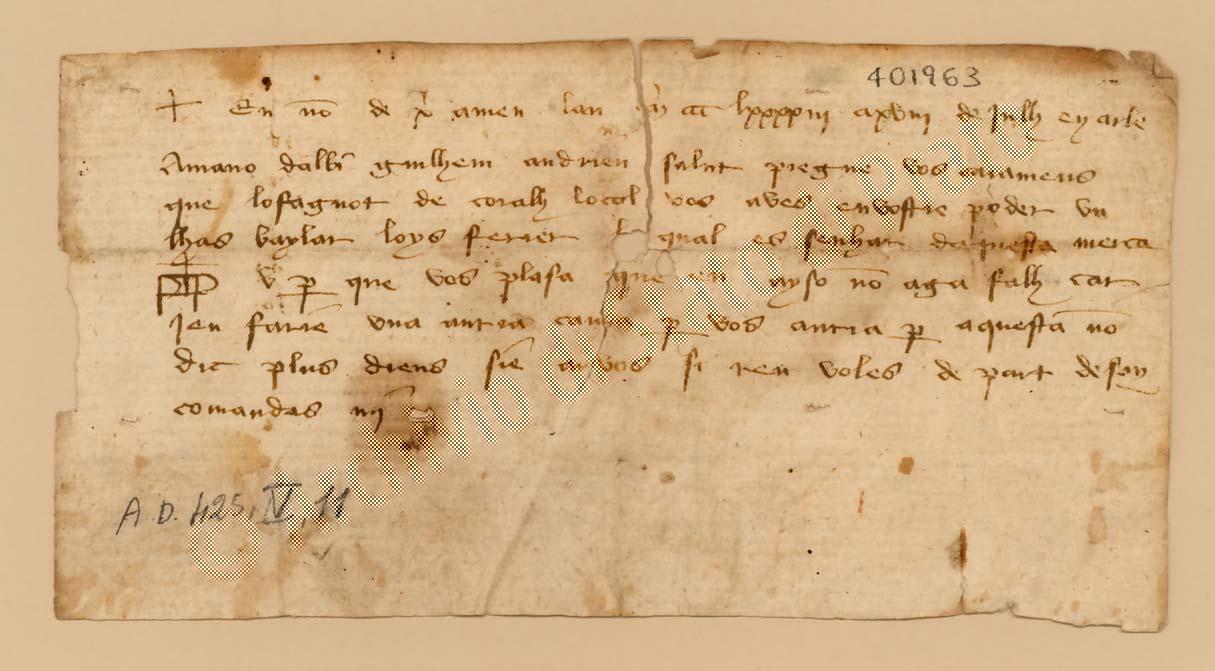 401963
+ En nō de x̄ amen lan m ccc lxxxxiii a xviii de Julh en arle
Amano dalbī guilhem andrieu salut pregue vos caramens
que lo fagnot de coralh local vos aves en vostre poder vu
lhas baylar loys ferrier lo qual es senhat daquesta merca
v per que vos plasa que en ayso nō aga falh car
Jeu farie una autra camia per vos autra per aquesta nō
dic plus diens sie an vos si ren voles de part de say
comandas mi
A D. 425, IV, 11
© Archivio di Stato di Prato